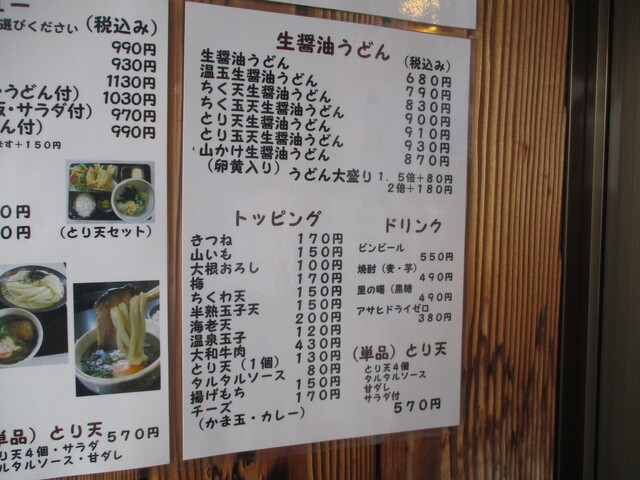 ュー
選びください (税込み)
990円
930円
1130円
うどん付) 1030円
飯・サラダ付) 970円
ん付) 990円
ます+150円
0円
0円
(とり天セット)
単品) とり天 570円
り天4個・サラダ
タルタルソース・甘ダレ
生醤油うどん (税込み)
生醤油うどん 680円
温玉生醤油うどん 790円
ちく天生醤油うどん 830円
ちく玉天生醤油うどん 900円
とり天生醤油うどん 910円
とり玉天生醤油うどん 930円
山かけ生醤油うどん 870円
(卵黄入り) うどん大盛り 1.5倍+80円
2倍+180円
トッピング
きつね 170円
山いも 150円
大根おろし 100円
梅 170円
ちくわ天 150円
半熟玉子天 150円
海老天 200円
温泉玉子 120円
大和牛肉 430円
とり天(1個) 130円
タルタルソース 80円
揚げもち 150円
チーズ 170円
(かま玉・カレー)
ドリンク
ビンビール 550円
焼酎(麦・芋) 490円
里の曙(黒糖 490円
アサヒドライゼロ 380円
(単品) とり天
とり天4個
タルタルソース
甘ダレ
サラダ付
570円